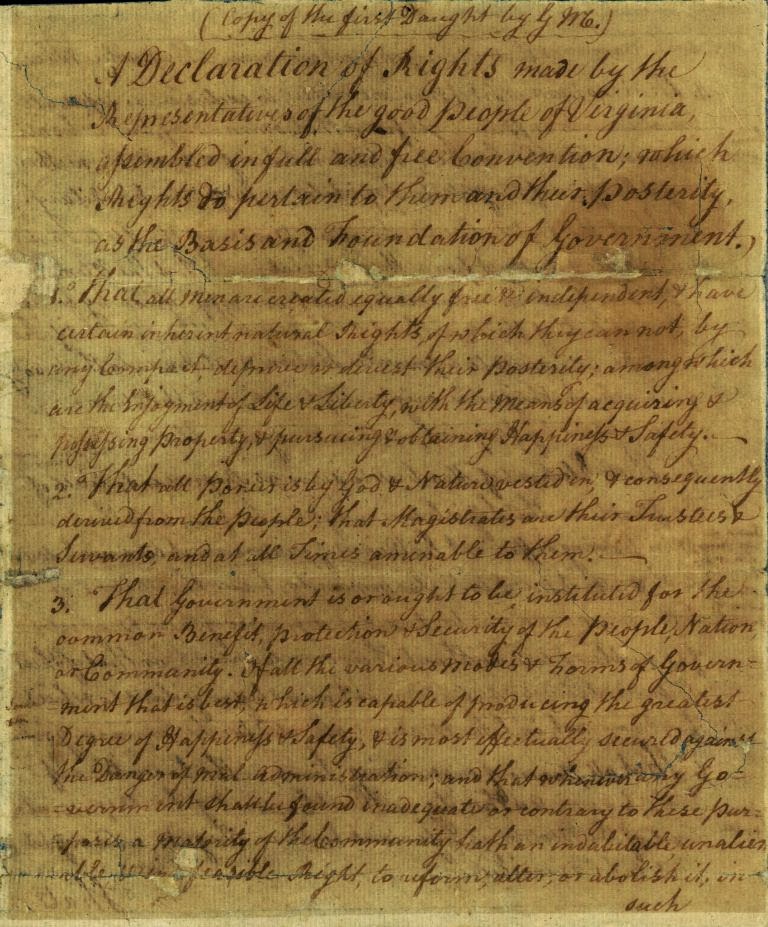 (Copy of the first Daught by G M.)
A Declaration of Rights made by the
Representatives of the good people of Virginia,
assembled in full and free Convention; which
Rights do pertain to them and their posterity,
as the Basis and Foundation of Government.,
1. That all men are created equally free & independent, & have
certain inherent natural Rights, of which they can not, by
any Compact, deprive or divest their posterity; among which
are the Enjoyment of Life & Liberty, with the means of acquiring &
possessing property, & pursuing & obtaining Happiness & Safety.
2. That all power is by God & Nature vested in, & consequently
derived from the people; that Magistrates are their Trustees &
Servants, and at all Times amenable to them.
3. That Government is or ought to be, instituted for the
common Benefit, protection & Security of the people, Nation
or Community. Of all the various modes & Forms of Govern=
=ment that is best, which is capable of producing the greatest
Degree of Happiness & Safety, & is most effectually secured against
the Danger of mal-administration; and that whenever any Go=
=vernment shall be found inadequate or contrary to these pur=
=poses, a majority of the Community hath an indubitable unalien
=able & indefeasible Right, to reform, alter, or abolish it, in
such